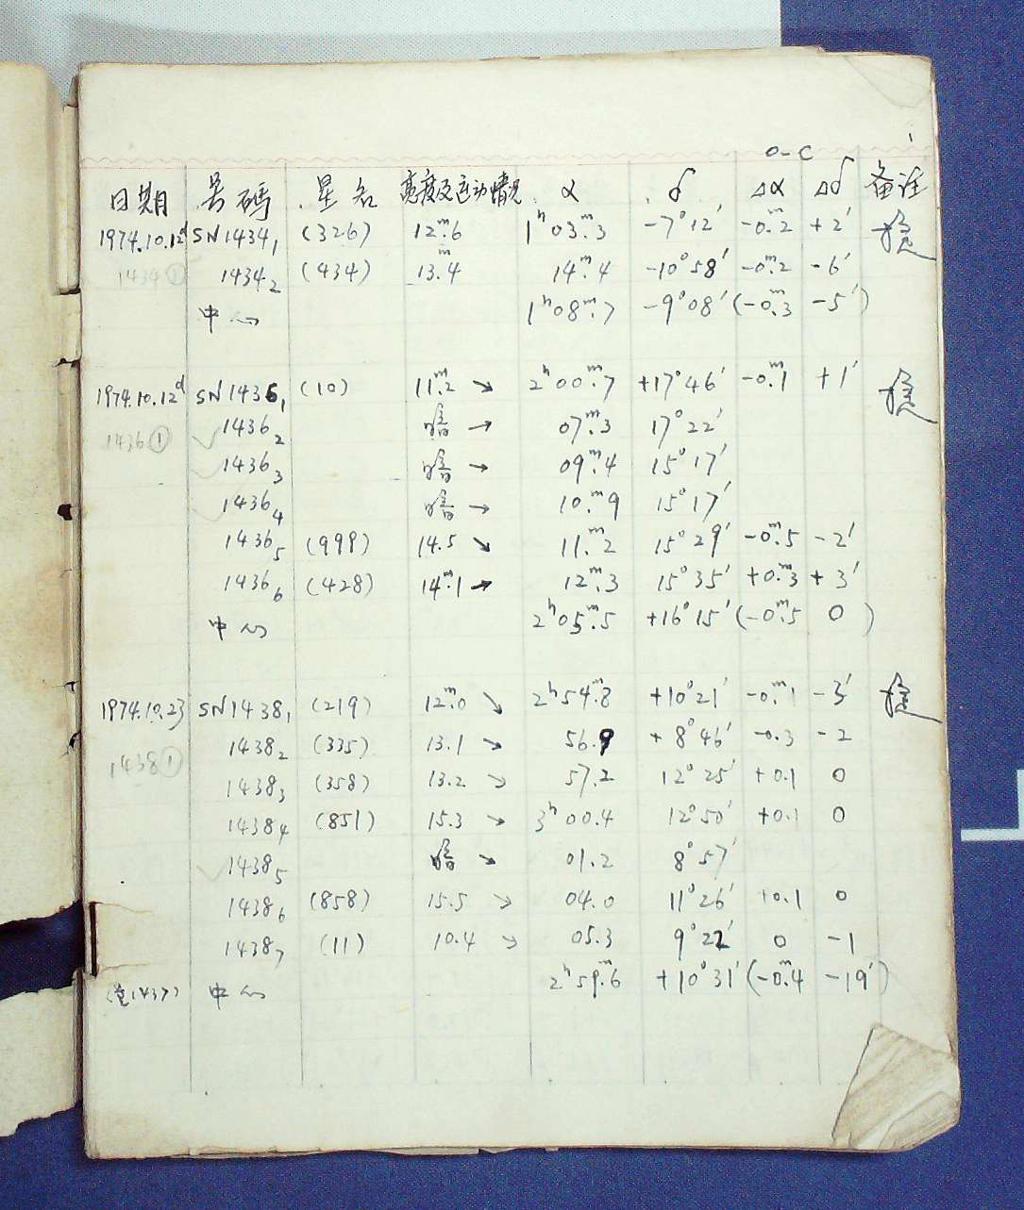 1
O-C
日期 号碼 星名 亮度及运动情况 α δ Δα Δδ 备注
1974.10.12ᵈ SN1434₁ (326) 12ᵐ.6 1ʰ03ᵐ.3 -7°12′ -0ᵐ.2 +2′
1434① 1434₂ (434) 13ᵐ.4 14ᵐ.4 -10°58′ -0ᵐ.2 -6′
中心 1ʰ08ᵐ.7 -9°08′ (-0ᵐ.3 -5′)
1974.10.12ᵈ SN1436₁ (10) 11ᵐ.2 ↘ 2ʰ00ᵐ.7 +17°46′ -0ᵐ.1 +1′
1436① 1436₂ 暗 → 07ᵐ.3 17°22′
1436₃ 暗 → 09ᵐ.4 15°17′
1436₄ 暗 → 10ᵐ.9 15°17′
1436₅ (999) 14.5 ↘ 11ᵐ.2 15°29′ -0ᵐ.5 -2′
1436₆ (428) 14ᵐ.1 → 12ᵐ.3 15°35′ +0ᵐ.3 +3′
中心 2ʰ05ᵐ.5 +16°15′ (-0ᵐ.5 0)
1974.10.23 SN1438₁ (219) 12ᵐ.0 ↘ 2ʰ54ᵐ.8 +10°21′ -0ᵐ.1 -3′
1438① 1438₂ (335) 13.1 ↘ 56.9 +8°46′ -0.3 -2
1438₃ (358) 13.2 ↘ 57.2 12°25′ +0.1 0
1438₄ (851) 15.3 ↘ 3ʰ00.4 12°50′ +0.1 0
1438₅ 暗 ↘ 01.2 8°57′
1438₆ (858) 15.5 ↘ 04.0 11°26′ +0.1 0
1438₇ (11) 10.4 ↘ 05.3 9°22′ 0 -1
1437) 中心 2ʰ59ᵐ.6 +10°31′ (-0ᵐ.4 -19′)